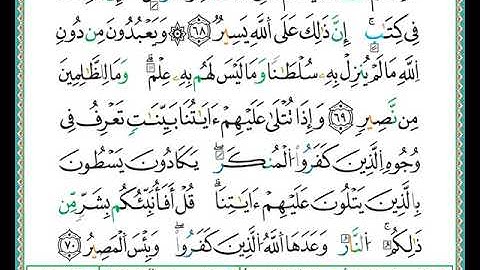 فِى كِتَٰبٍ ۚ إِنَّ ذَٰلِكَ عَلَى ٱللَّهِ يَسِيرٌ ٦٨ ۞ وَيَعْبُدُونَ مِن دُونِ
ٱللَّهِ مَا لَمْ يُنزِلْ بِهِۦ سُلْطَٰنًا وَمَا لَيْسَ لَهُم بِهِۦ عِلْمٌ ۗ وَمَا لِلظَّٰلِمِينَ
مِن نَّصِيرٍ ٦٩ وَإِذَا تُتْلَىٰ عَلَيْهِمْ ءَايَٰتُنَا بَيِّنَٰتٍ تَعْرِفُ فِى
وُجُوهِ ٱلَّذِينَ كَفَرُوا۟ ٱلْمُنكَرَ ۖ يَكَادُونَ يَسْطُونَ
بِٱلَّذِينَ يَتْلُونَ عَلَيْهِمْ ءَايَٰتِنَا ۗ قُلْ أَفَأُنَبِّئُكُم بِشَرٍّ مِّن
ذَٰلِكُمُ ۗ ٱلنَّارُ وَعَدَهَا ٱللَّهُ ٱلَّذِينَ كَفَرُوا۟ ۖ وَبِئْسَ ٱلْمَصِيرُ ٧٠